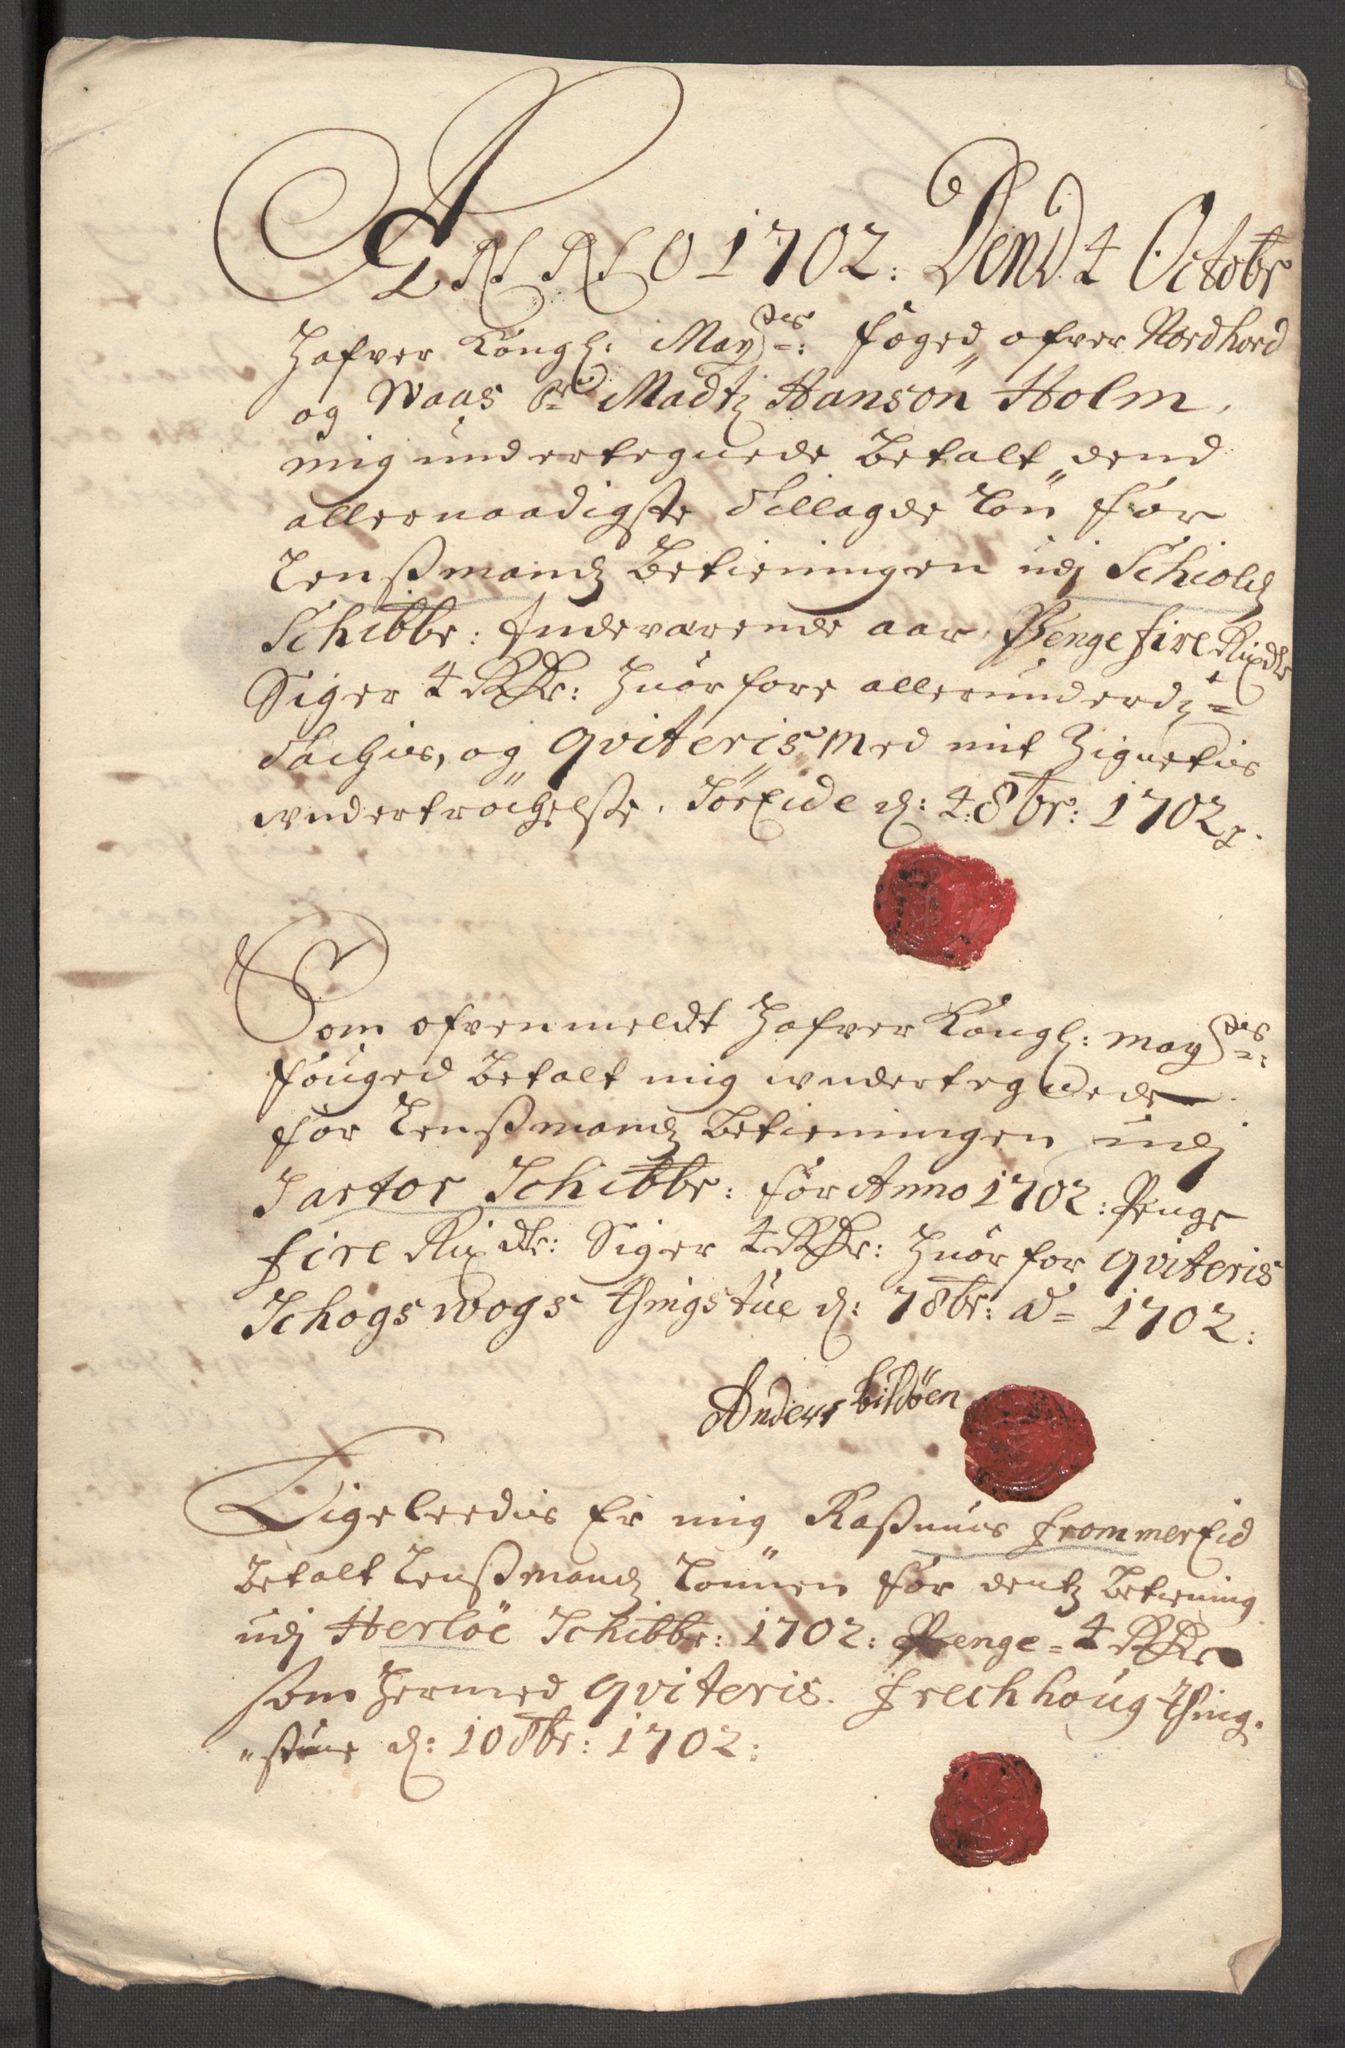 ANNO 1702: Dend 4 Octobr
Hafver Kongl: May^des: foged ofver Nordhord
og Waas Sr Madtz Hanson Holm,
mig undertegnede betalt dend
allernaadigste tillagde Lön for
Lensßmandz betieningen udj Schiold
Schibbr: Indeværende aar, Penge fire Rixdlr
Siger 4 Rdr: Huorfore allerunderdst
tachis, og qviteris med mit Zignetis
undertröchelse. Törexide d: 4: 8br: 1702
Som ofvenmeldt Hafver Kongl: may^des:
fouged betalt mig undertegnede
for Lensßmandz betieningen udj
Sartor Schibbr: for Anno 1702: Penge
fire Rixdlr: Siger 4 Rdr: Huorfor qviteris
Schogswogs thingstue d: 7 8br: Ao 1702:
Anders bildöen
Ligeleedis Er mig Raßmus frommerEid
betalt Lensßmandz Lönnen for dentz betiening
udj Herlöe Schibbr: 1702: Penge = 4 Rdr
som hermed qviteris. frechhoug thing=
"stue d: 10 8br: 1702: